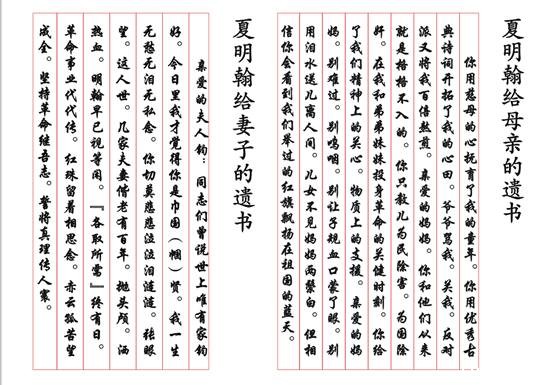 夏明翰给母亲的遗书
你用慈母的心抚育了我的童年。你用优秀古
典诗词开拓了我的心田。爷爷骂我。关我。反对
派又将我百倍煎熬。亲爱的妈妈。你和他们从来
就是格格不入的。你只教儿为民除害。为国除
奸。在我和弟弟妹妹投身革命的关健时刻。你给
了我们精神上的关心。物质上的支援。亲爱的妈
妈。别难过。别呜咽。别让子规血口蒙了眼。别
用泪水送儿离人间。儿女不见妈妈两鬓白。但相
信你会看到我们举过的红旗飘扬在祖国的蓝天。
夏明翰给妻子的遗书
亲爱的夫人钧：同志们曾说世上唯有家钧
好。今日里我才觉得你是巾国（帼）贤。我一生
无愁无泪无私念。你切莫悲悲泣泣泪涟涟。张眼
望。这人世。几家夫妻偕老有百年。抛头颅。洒
热血。明翰早已视等闲。『各取所需』终有日。
革命事业代代传。红珠留着相思念。赤云孤苦望
成全。坚持革命继吾志。誓将真理传人寰。